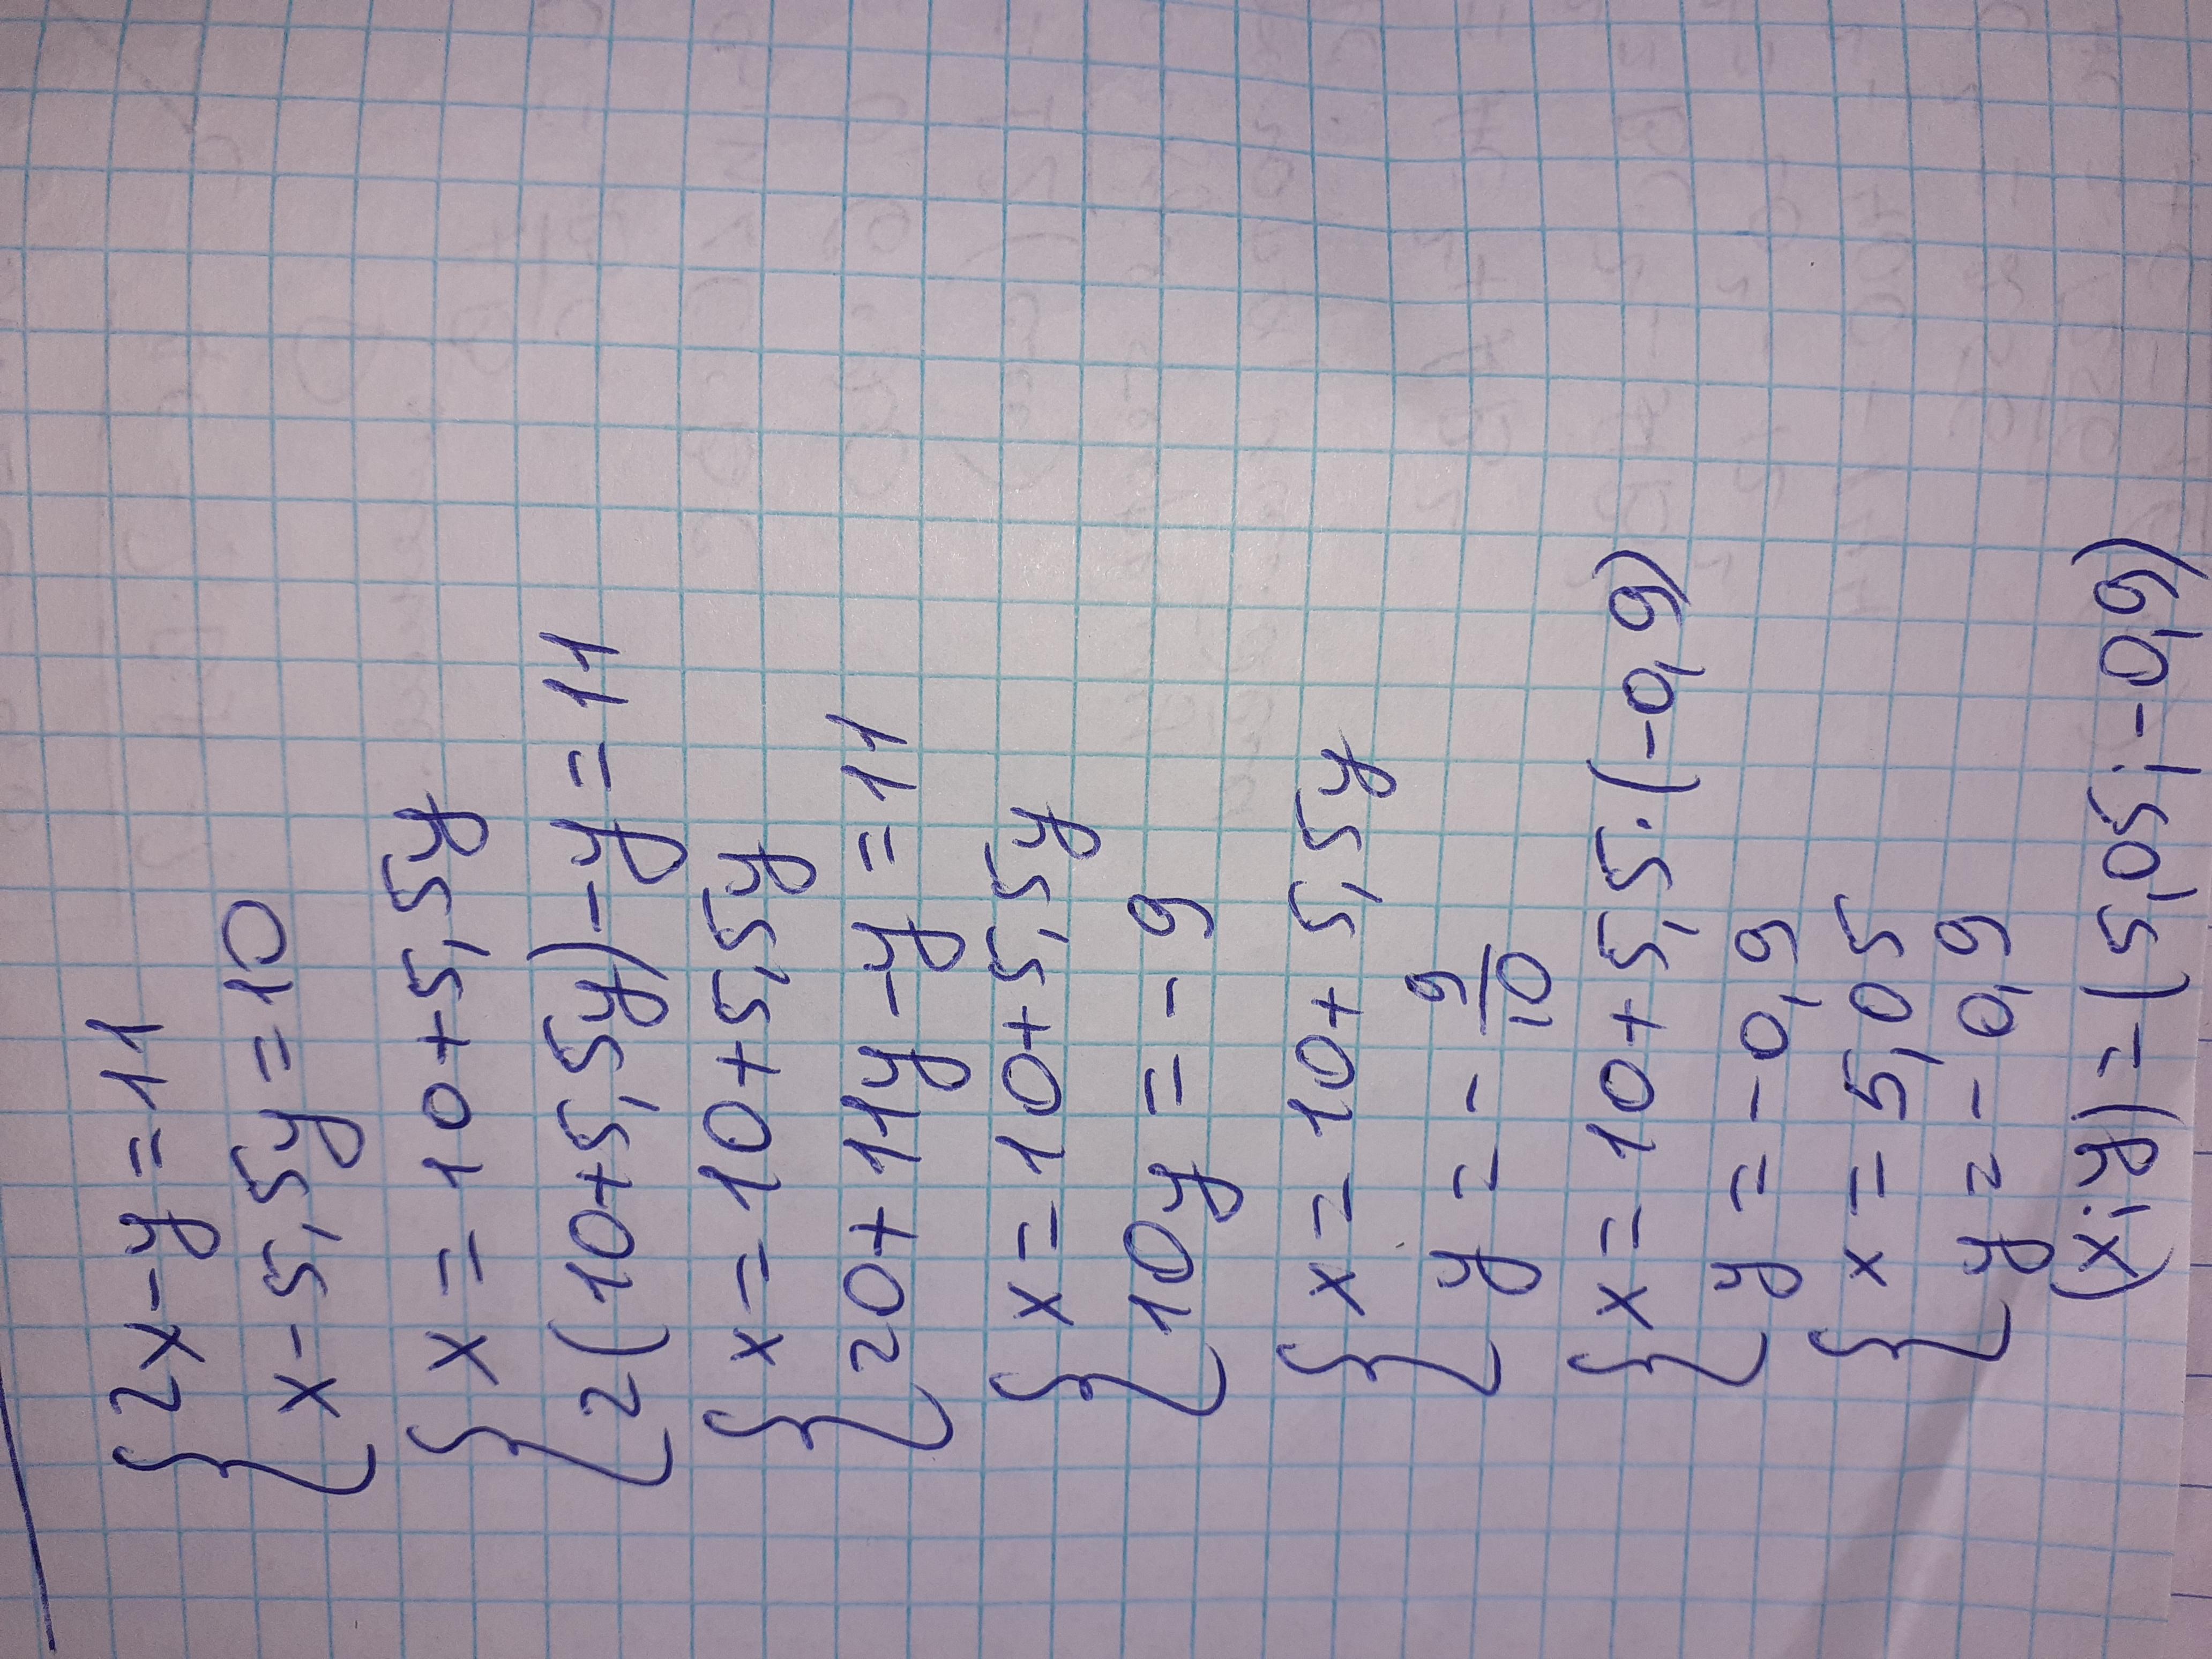 {2x-y=11
x-5,5y=10
{x=10+5,5y
2(10+5,5y)-y=11
{x=10+5,5y
20+11y-y=11
{x=10+5,5y
10y=-9
{x=10+5,5y
y=-9/10
{x=10+5,5·(-0,9)
y=-0,9
{x=5,05
y=-0,9
(x;y)=(5,05;-0,9)